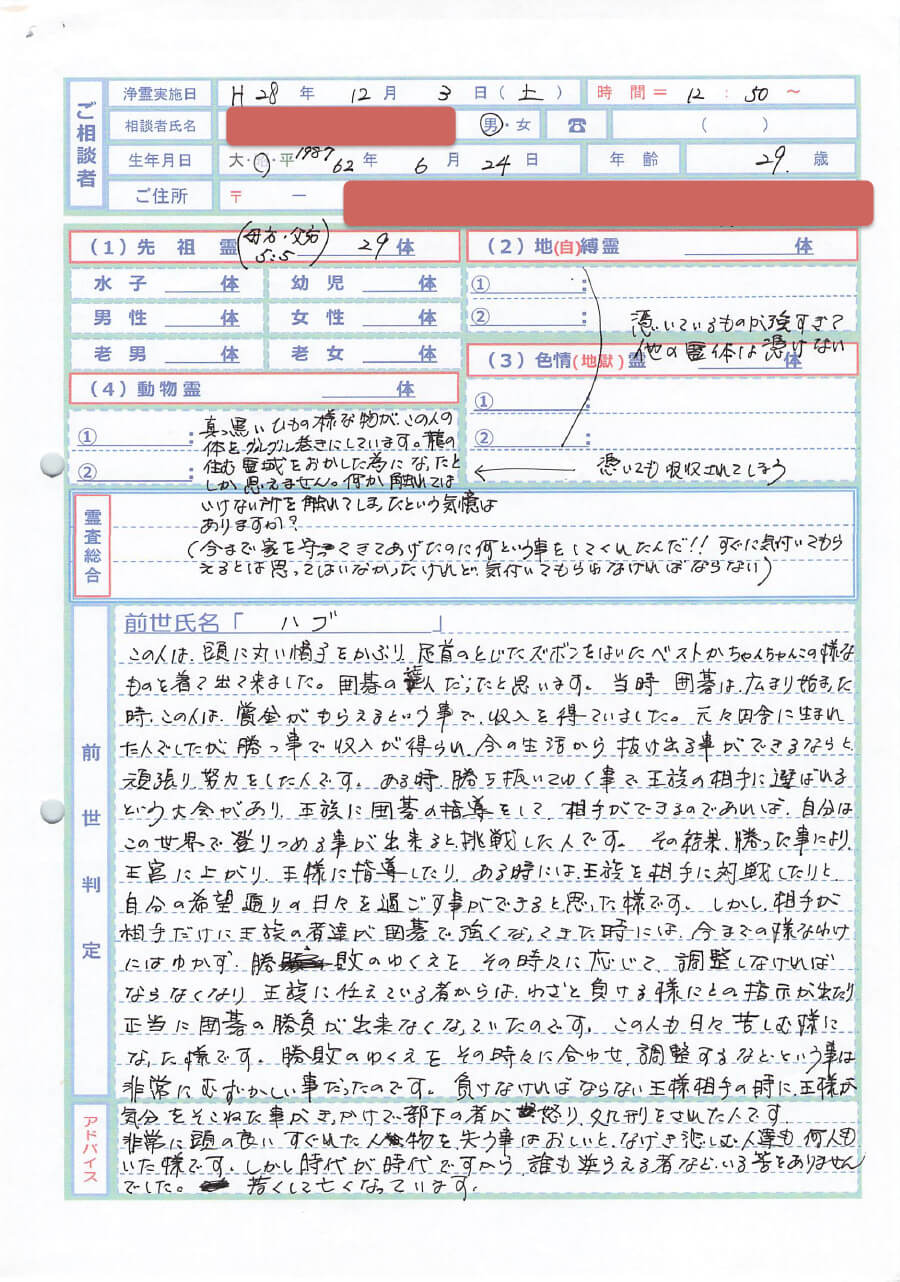 ご相談者
浄霊実施日 H28年 12月 3日(土) 時間= 12:50~
相談者氏名 男・女 ☎ ( )
生年月日 大・昭・平 1987 62年 6月 24日 年齢 29.歳
ご住所 〒 ―
(1)先祖霊 (母方・父方 5:5) 29体
水子 体 幼児 体
男性 体 女性 体
老男 体 老女 体
(2)地(自)縛霊 体
① :
② :
憑いているものが強すぎて
他の霊体は憑けない
(3)色情(地獄)霊 体
① :
② :
憑いても吸収されてしまう
(4)動物霊 体
① :
② :
真っ黒いひもの様な物が、この人の
体をグルグル巻きにしています。龍の
住む霊域をおかした為になったと
しか思えません。何か触れては
いけない所を触れてしまったという気憶は
ありますか?
(今まで家を守ってきてあげたのに何という事をしてくれたんだ!!すぐに気付いてもら
えるとは思ってはいなかったけれど、気付いてもらわなければならない)
霊査総合
前世氏名「 ハブ 」
前世判定
この人は、頭に丸い帽子をかぶり、足首のとじたズボンをはいたベストかちゃんちゃんこの様な
ものを着て出て来ました。囲碁の達人だったと思います。当時囲碁は、広まり始まった
時、この人は、賞金がもらえるという事で、収入を得ていました。元々田舎に生まれ
た人でしたが勝つ事で収入が得られ、今の生活から抜け出る事ができるならと、
頑張り努力をした人です。ある時、勝ち抜いてゆく事で王族の相手に選ばれる
という大会があり、王族に囲碁の指導をして、相手ができるのであれば、自分は
この世界で登りつめる事が出来ると挑戦した人です。その結果、勝った事により、
王宮に上がり、王様に指導したり、ある時には、王族を相手に対戦したりと、
自分の希望通りの日々を過ごす事ができると思った様です。しかし、相手が
相手だけに王族の者達が囲碁で強くなってきた時には、今までの様なわけ
にはゆかず、勝敗のゆくえをその時々に応じて、調整しなければ
ならなくなり、王族に仕えている者からは、わざと負ける様にとの指示が出たり
正当に囲碁の勝負が出来なくなっていたのです。この人も日々苦しむ様に
なった様です。勝敗のゆくえをその時々に合わせ、調整するなどという事は
非常にむずかしい事だったのです。負けなければならない王様相手の時に、王様が
気分をそこねた事がきっかけで部下の者が怒り、処刑をされた人です。
アドバイス
非常に頭の良い、すぐれた人物を失う事はおしいと、なげき悲しむ人達も何人も
いた様です。しかし時代が時代ですから、誰も逆らえる者など、いる筈もありません
でした。若くして亡くなっています。